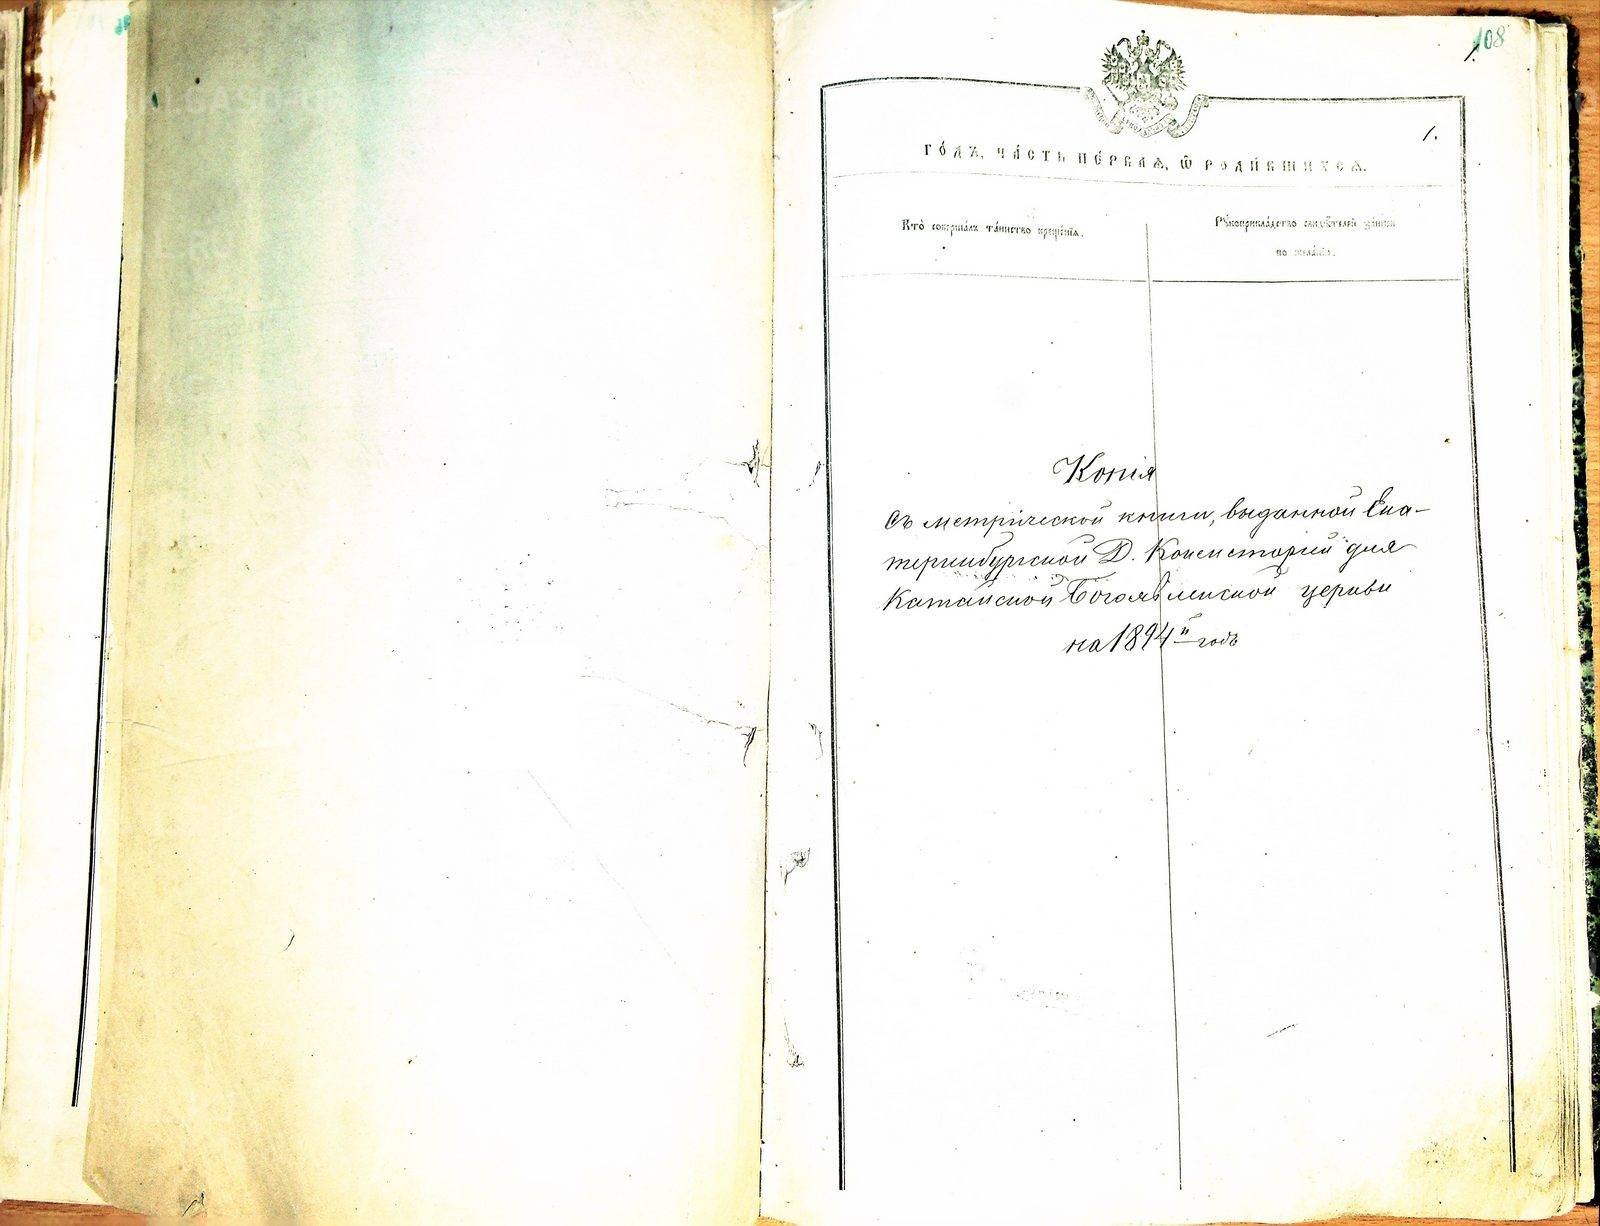 108
1.
1.
Го́дъ, ча́сть пе́рваѧ, ѡ҆ роди́вшихсѧ.
Кто̀ соверша́лъ та́инство креще́нїѧ.
Рꙋкоприкла́дство свидѣ́телей за́писи
по жела́нїю.
Копія
съ метрической книги, выданной Ека-
теринбургской Д. Консисторіей для
Катайской Богоявленской церкви
на 1894й годъ